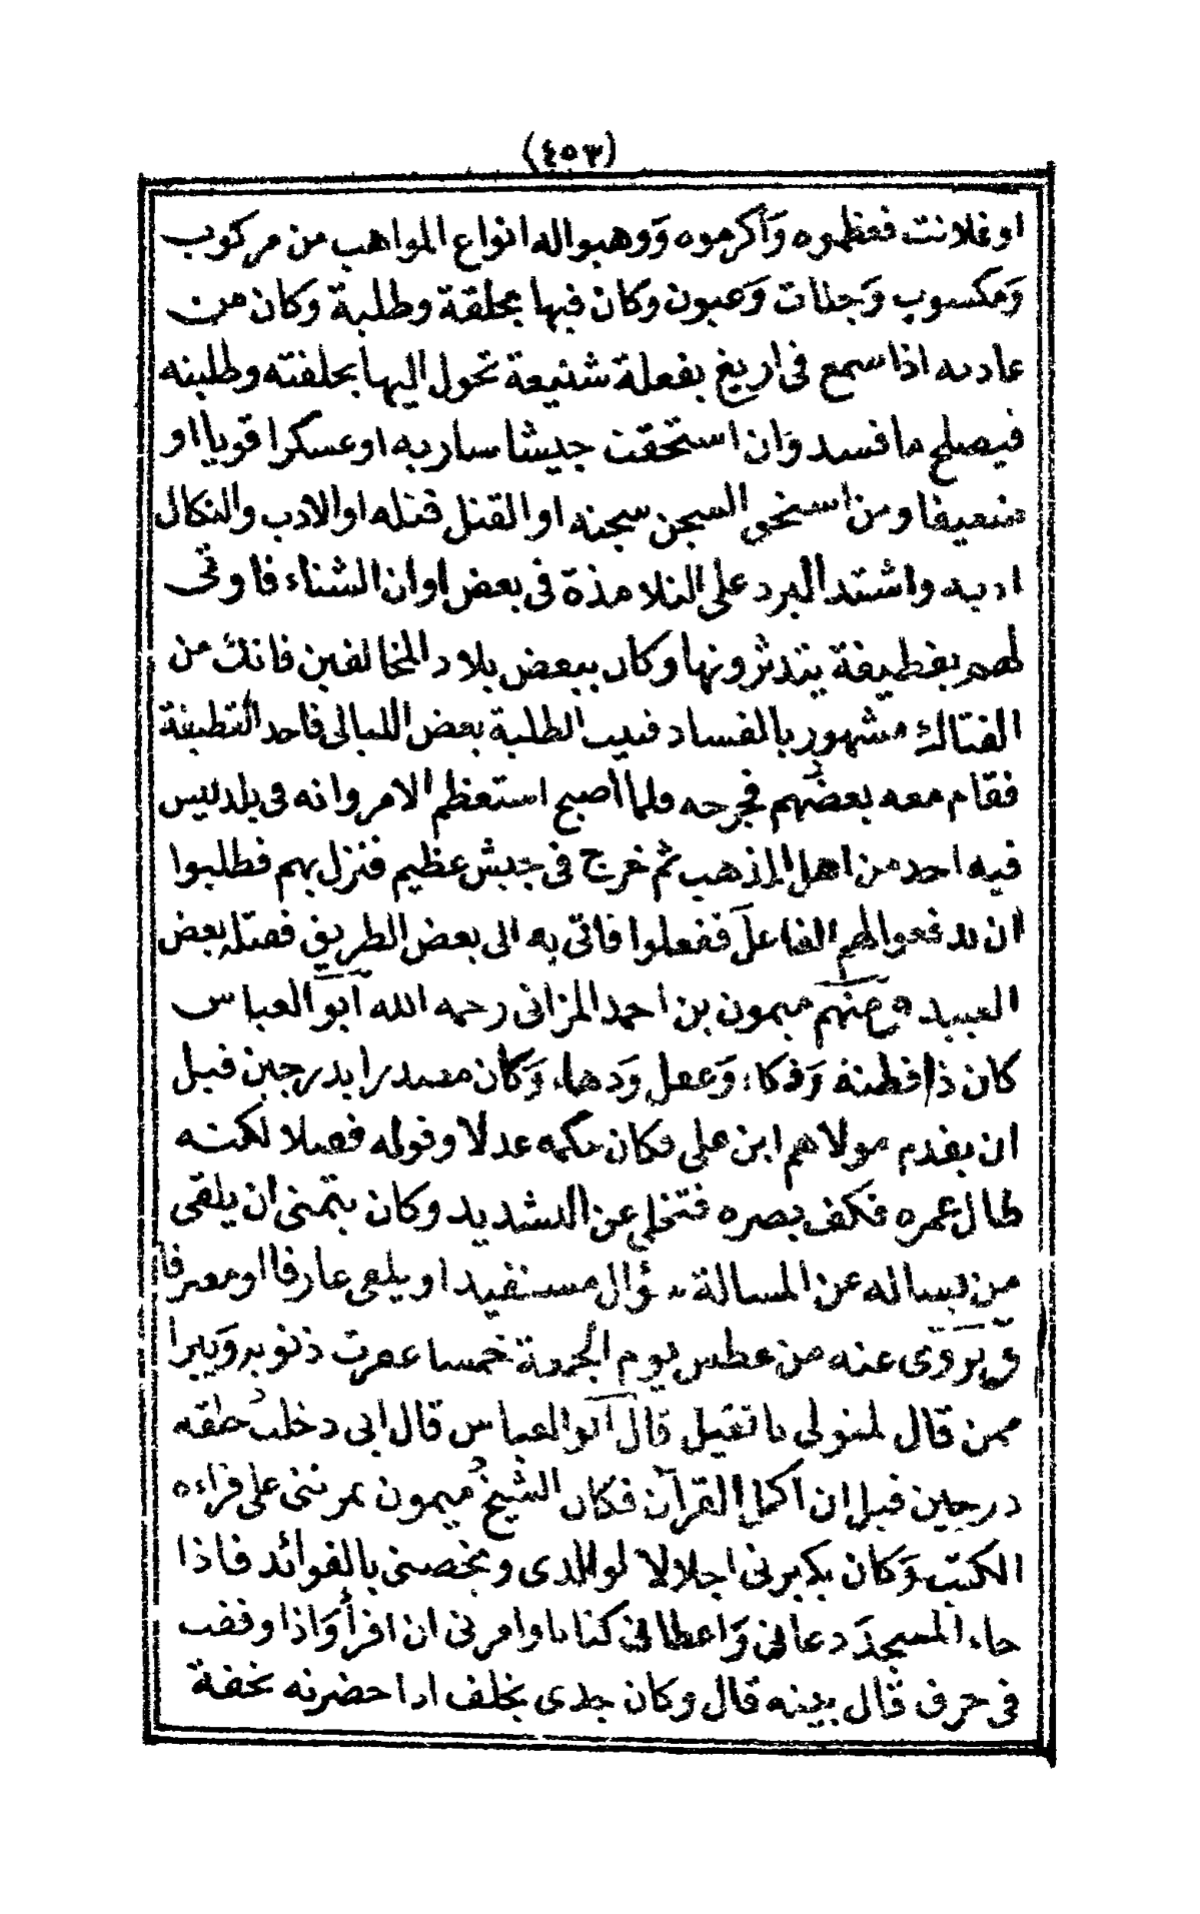 (٤٥٣)
اوغلانت فعظموه وَأكرموه وَوهبواله انواع المواهب من مركوب
وَمكسوب وَجنات وَعيون وكان فيها بحلقة وطلبة وكان من
عادته اذا سمع فى اريغ بفعلة شنيعة تحول اليها بحلقته وطلبته
فيصلح ما فسد وَان استحقت جيشا سار به اوعسكرا قويا او
ضعيفا ومن استحق السجن سجنه او القتل قتله او الادب والنكال
ادبه واشتد البرد على التلامذة فى بعض اوان الشتاء فاوتى
لهم بقطيفة يتدثرونها وكان ببعض بلاد المخالفين فاتك من
الفتاك مشهور بالفساد فبيت الطلبة بعض الليالى فاخد القطيفة
فقام معه بعضهم فجرحه فلما اصبح استعظم الامر وانه فى بلد ليس
فيه احد من اهل المذهب ثم خرج فى جيش عظيم فنزل بهم فطلبوا
ان يدفعوا لهم الفاعل ففعلوا فاتى به الى بعض الطريق فقتله بعض
العبيد ه ومنهم ميمون بن احمد المزاتى رحمه الله ابو العباس
كان ذا فطنة وَذكاء وَعقل وَدهاء وَكان مصدرا بدرجين قبل
ان يقدم مولاهم ابن على فكان حكمه عدلا وقوله فصلا لكنه
طال عمره فكف بصره فتخلى عن الشديد وكان يتمنى ان يلقى
من يساله عن المسالة سؤال مستفيد او يلقى عارفا او معرفا
وَيروى عنه من عطس يوم الجمعة خمسا غفرت ذنوبه وَيبرا
ممن قال لمتولى ما تقبل قال ابو العباس قال ابى دخلت حلقة
درجين قبل ان اكمل القرآن فكان الشيخ ميمون يمرننى على قراءه
الكتب وَكان يكبرنى اجلالا لوالدى ويخصنى بالفوائد فاذا
جاء المسجد دعانى وَاعطانى كتابا وامرنى ان اقرأ وَاذا وقفت
فى حرف قال بينه قال وكان جدى يخلف اذا حضرته تحفة